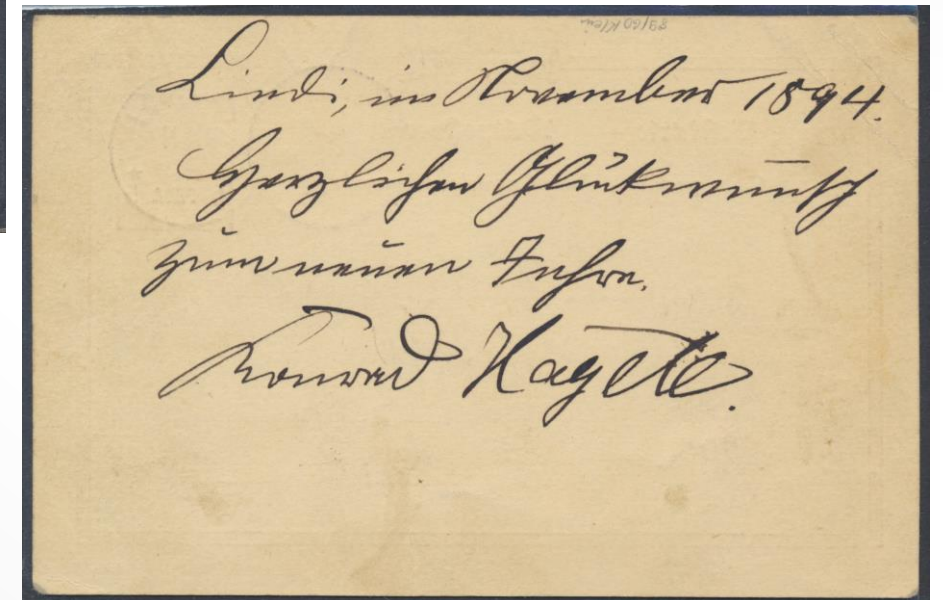 Lindi, im November 1894.
Herzlichen Glückwunsch
zum neuen Jahre.
Konrad Hagele.